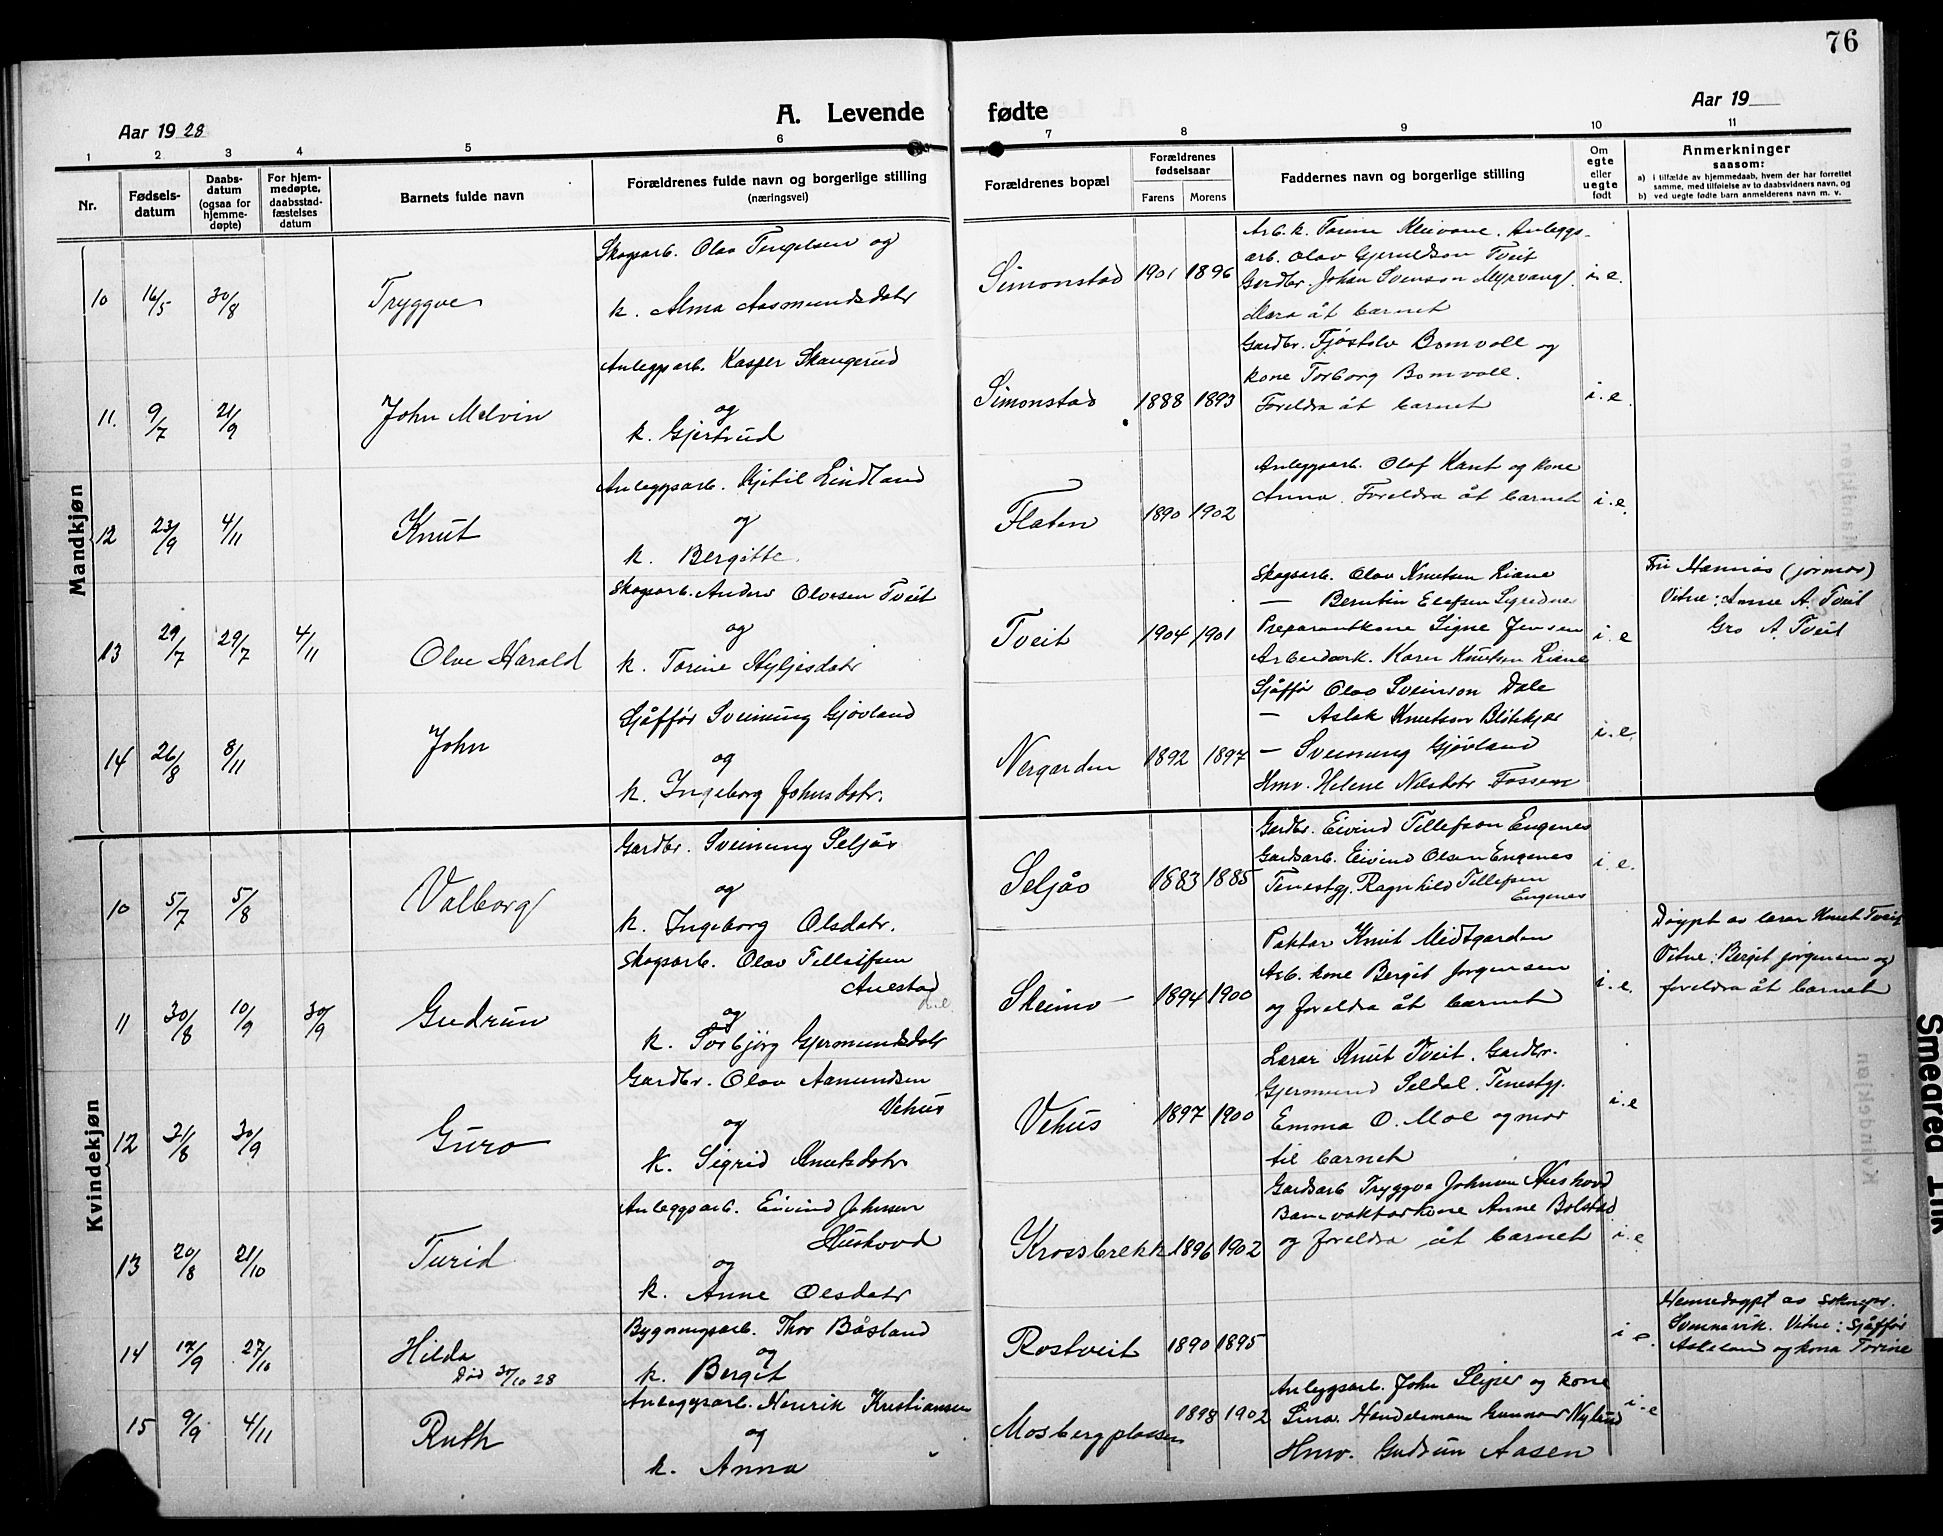 76
A. Levende fødte
Aar 1928
Aar 19
1 2 3 4 5 6 7 8 9 10 11
Nr.
Fødsels-
datum
Daabs-
datum
(ogsaa for
hjemme-
døpte)
For hjem-
medøpte,
daabsstad-
fæstelses
datum
Barnets fulde navn
Forældrenes fulde navn og borgerlige stilling
(næringsvei)
Forældrenes bopæl
Forældrenes
fødselsaar
Farens Morens
Faddernes navn og borgerlige stilling
Om
egte
eller
uegte
født
Anmerkninger
saasom:
a) i tilfælde av hjemmedaab, hvem der har forrettet
samme, med tilføielse av to daabsvidners navn, og
b) ved uegte fødte barn anmelderens navn m. v.
Mandkjøn
10 16/5 30/8 Tryggve
Skogsarb. Olav Tengelsen og
k. Alma Aasmundsdatr
Simonstad 1901 1896
Arb. k. Torine Kleivane. Anleggs-
arb. Olav Gjeruldson Tveit
Gardbr. Johan Svenson Myrvang
Mora åt barnet
i. e.
11. 9/7 21/9 John Melvin
Anleggsarb. Kasper Skangerud
og
k. Gjertrud
Simonstad 1888 1893
Gardbr. Tjøstolv Bomvoll og
kone Torborg Bomvoll.
Foreldra åt barnet
i. e.
12 23/9 4/11 Knut
Anleggsarb. Kjetil Lindland
og
k. Bergitte.
Flaten 1890 1902
Anleggsarb. Olof Kant og kone
Anna. Foreldra åt barnet
i. e.
13 29/7 29/7 4/11 Olve Harald
Skogsarb. Anders Olvesen Tveit
og
k. Torine Nyljesdatr
Tveit 1904 1901
Skogsarb. Olav Knutsen Liane
— Berntin Elefsen
Preparantkone Signe Jensen
Arbeidark. Karen Knutsen Liane
i. e
Fru Hannås (jormor)
Vitne: Anne A. Tveit
Gro A. Tveit
14 26/8 8/11 John
Sjåffør Sveinung Gjøvland
og
k. Ingeborg Johnsdatr.
Nergarden 1892 1897
Sjåffør Olav Sveinson Dale
— Aslak Knutson Bløtekjær
— Sveinung Gjøvland
Hmv. Helene Nilsdatr Fossem
i. e.
Kvindekjøn
10 5/7 5/8 Valborg
Gardbr. Sveinung Seljås
og
k. Ingeborg Olsdatr.
Seljås 1883 1885
Gardbr. Eivind Tellefson Engenes
Gardsarb. Eivind Olsen Engenes
Tenestgj. Ragnhild Tellefsen
Engenes
i. e.
11 30/8 10/9 30/9 Gudrun
Skogsarb. Olav Tellefsen
Auestad
og
k. Torbjørg Gjermundsdatr
Skeimo 1894 1900
Paktar Knut Midtgarden
Arb. kone Bergit Jorgensen
og foreldra åt barnet
i. e.
Døypt av lærar Knut Tveit
Vitne: Bergit jørgensen og
foreldra åt barnet
12 31/8 30/9 Guro
Gardbr. Olav Aanundsen
Vehus
og
k. Sigrid Knutsdatr
Vehus 1897 1900
Lærar Knut Tveit. Gardbr.
Gjermund Seldal. Tenestgj.
Emma O. Moe og mor
til barnet
i. e
13 20/8 21/10 Turid
Anleggsarb. Eivind Johnsen
Huskovd
og
k. Anne Olsdatr
Krossbrekk 1896 1902
Gardsarb Tryggve Johnsen Huskovd
Banevaktarkone Anne Bolstad
og foreldra åt barnet
i. e
14 17/9 27/10 Hilda
Død 30/10 28
Bygningsarb. Thor Båsland
og
k. Bergit
Rostveit 1890 1895
i e.
Heimedøypt av sokнepr.
Svennevik. Vitne: Sjåffør
Askeland og kona Torine
15 9/9 4/11 Ruth
Anleggsarb. Henrik Kristiansen
og
k. Anna
Mosbergplassen 1898 1902
Anleggsarb. John Sliper og kone
Lina. Handelsmann Gunnar Nylund
Hmv. Gudrun Aasen
i. e
Smeared Ink